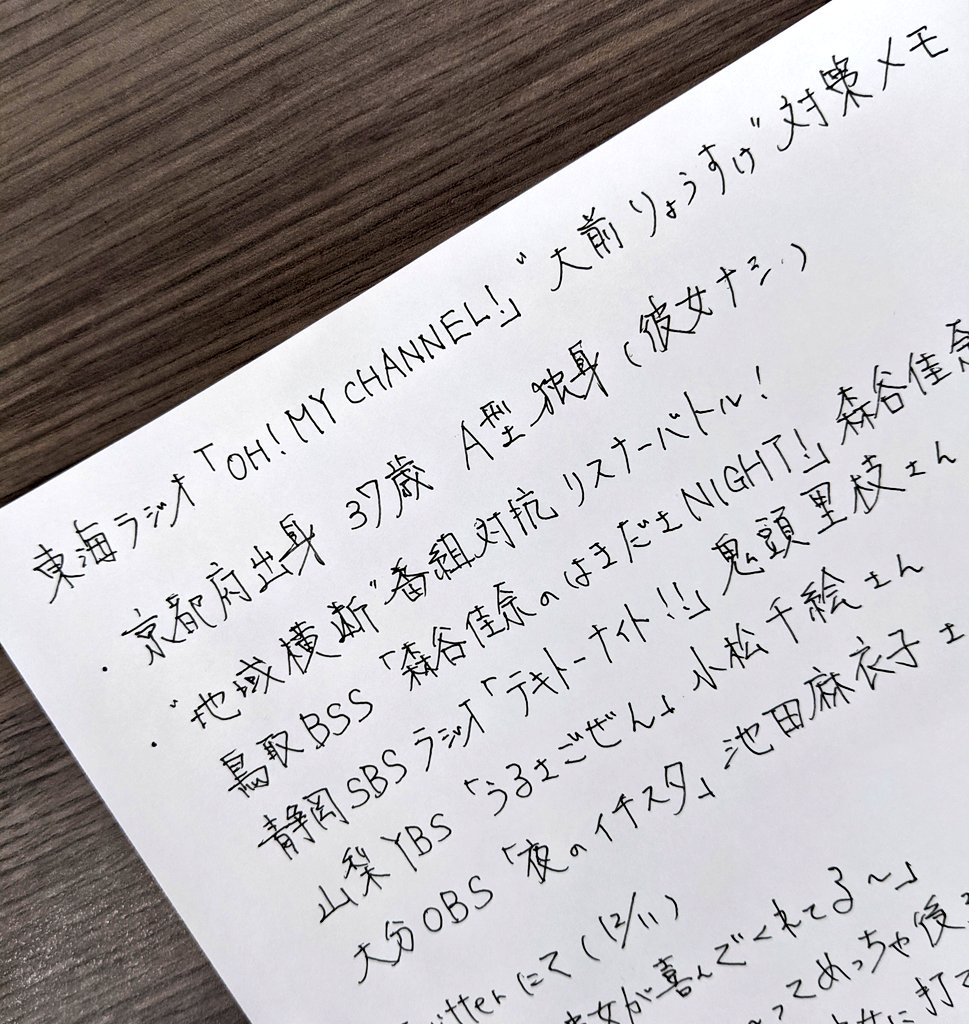 東海ラジオ「OH! MY CHANNEL!」"大前りょうすけ"対策メモ
・京都府出身 37歳 A型 独身(彼女ナシ)
・"地域横断"番組対抗 リスナーバトル!
鳥取BSS「森谷佳奈のはきだせNIGHT!」森谷佳奈
静岡SBSラジオ「テキトーナイト!!」鬼頭里枝さん
山梨YBS「うるさごぜん」小松千絵さん
大分OBS「夜のイチスタ」池田麻衣子さ
Twitterにて(12/11)
彼女が喜んでくれてる〜」
ってめっちゃ後
女に打